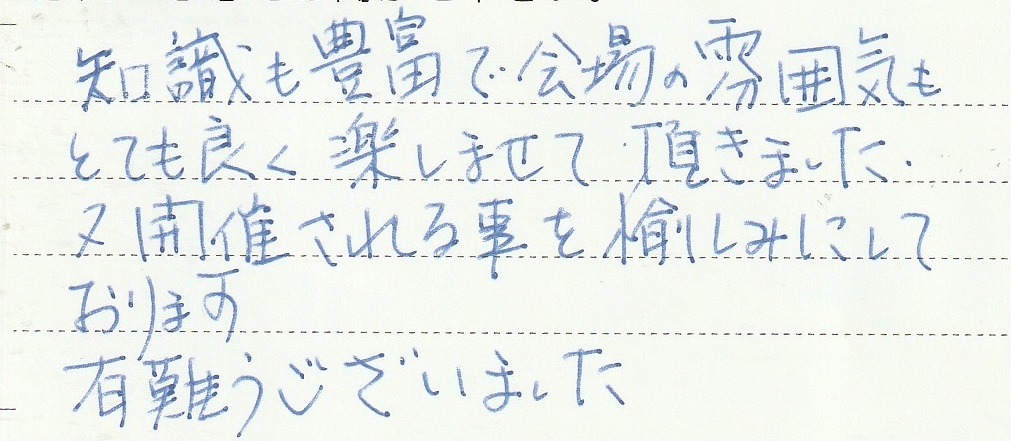 知識も豊富で会場の雰囲気も
とても良く楽しませて頂きました.
又開催される事を愉しみにして
おります
有難うございました